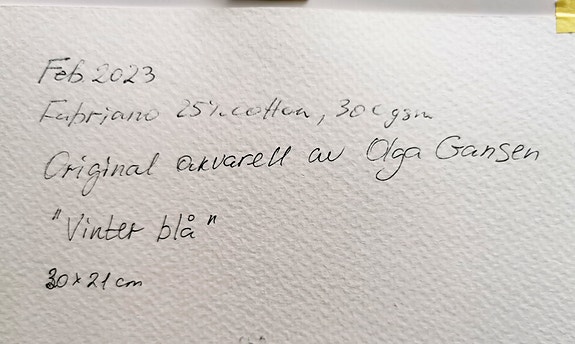 Feb. 2023
Fabriano 25% cotton, 300 gsm
Original akvarell av Olga Gansen
"Vinter blå"
30x21 cm